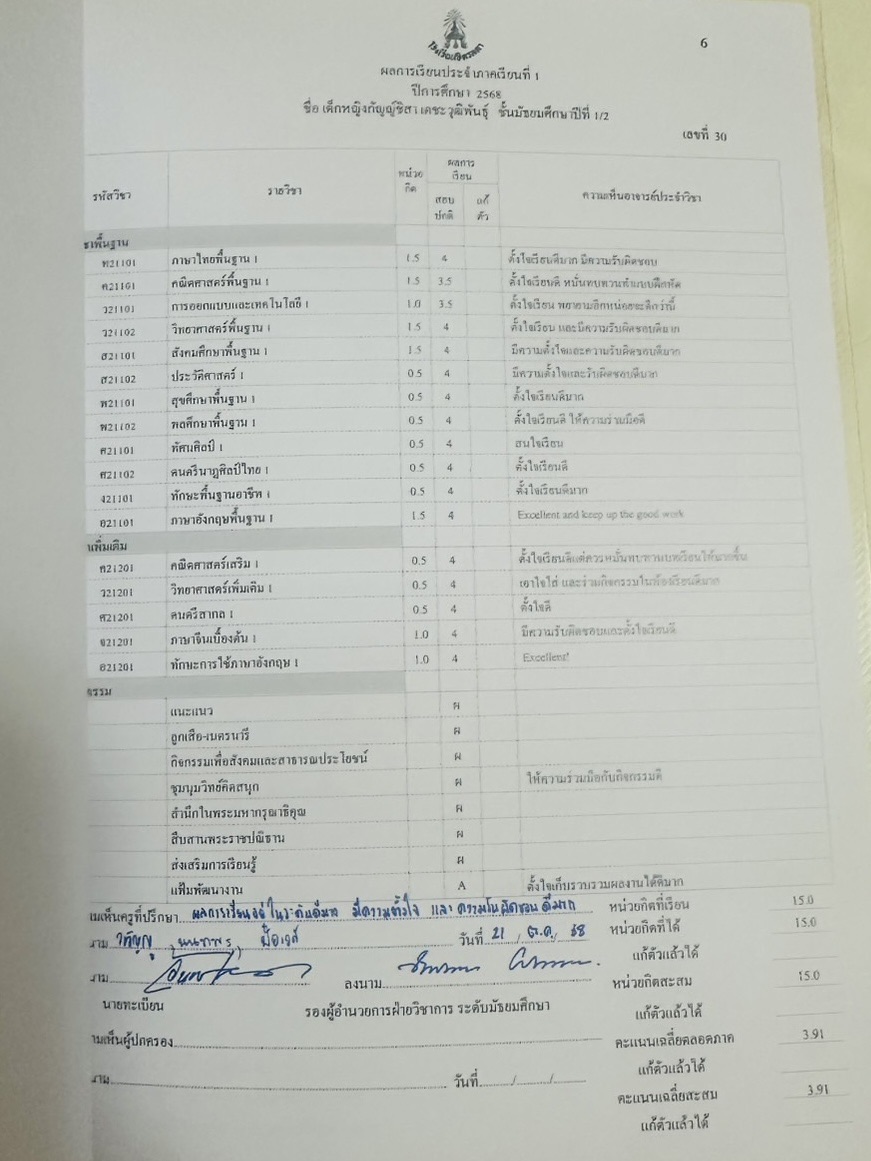 6
ผลการเรียนประจำภาคเรียนที่ 1
ปีการศึกษา 2568
ชื่อ เด็กหญิงกัญญ์ชิสา เดชะวุฒิพันธุ์ ชั้นมัธยมศึกษาปีที่ 1/2
เลขที่ 30
รหัสวิชา รายวิชา หน่วยกิต ผลการเรียน สอบปกติ แก้ตัว ความเห็นอาจารย์ประจำวิชา
ชาพื้นฐาน
ท21101 ภาษาไทยพื้นฐาน 1 1.5 4 ตั้งใจเรียนดีมาก มีความรับผิดชอบ
ค21101 คณิตศาสตร์พื้นฐาน 1 1.5 3.5 ตั้งใจเรียนดี หมั่นทบทวนทำแบบฝึกหัด
ว21101 การออกแบบและเทคโนโลยี 1 1.0 3.5 ตั้งใจเรียน พยายามอีกหน่อยจะดีกว่านี้
ว21102 วิทยาศาสตร์พื้นฐาน 1 1.5 4 ตั้งใจเรียน และมีความรับผิดชอบดีมาก
ส21101 สังคมศึกษาพื้นฐาน 1 1.5 4 มีความตั้งใจและความรับผิดชอบดีมาก
ส21102 ประวัติศาสตร์ 1 0.5 4 มีความตั้งใจและรับผิดชอบดีมาก
พ21101 สุขศึกษาพื้นฐาน 1 0.5 4 ตั้งใจเรียนดีมาก
พ21102 พลศึกษาพื้นฐาน 1 0.5 4 ตั้งใจเรียนดี ให้ความร่วมมือดี
ศ21101 ทัศนศิลป์ 1 0.5 4 สนใจเรียน
ศ21102 ดนตรีนาฏศิลป์ไทย 1 0.5 4 ตั้งใจเรียนดี
ง21101 ทักษะพื้นฐานอาชีพ 1 0.5 4 ตั้งใจเรียนดีมาก
อ21101 ภาษาอังกฤษพื้นฐาน 1 1.5 4 Excellent and keep up the good work
เพิ่มเติม
ค21201 คณิตศาสตร์เสริม 1 0.5 4 ตั้งใจเรียนดีแต่ควรหมั่นทบทวนบทเรียนให้มากขึ้น
ว21201 วิทยาศาสตร์เพิ่มเติม 1 0.5 4 เอาใจใส่ และร่วมกิจกรรมในห้องเรียนดีมาก
ศ21201 ดนตรีสากล 1 0.5 4 ตั้งใจดี
จ21201 ภาษาจีนเบื้องต้น 1 1.0 4 มีความรับผิดชอบและตั้งใจเรียนดี
อ21201 ทักษะการใช้ภาษาอังกฤษ 1 1.0 4 Excellent!
กรรม
แนะแนว ผ
ลูกเสือ-เนตรนารี ผ
กิจกรรมเพื่อสังคมและสาธารณประโยชน์ ผ
ชุมนุมวิทย์คิดสนุก ผ ให้ความร่วมมือกับกิจกรรมดี
สำนึกในพระมหากรุณาธิคุณ ผ
สืบสานพระราชปณิธาน ผ
ส่งเสริมการเรียนรู้ ผ
แฟ้มพัฒนางาน A ตั้งใจเก็บรวบรวมผลงานได้ดีมาก
ามเห็นครูที่ปรึกษา ผลการเรียนอยู่ในระดับดีมาก มีความตั้งใจ และความรับผิดชอบดีมาก หน่วยกิตที่เรียน 15.0
งาม วันที่ 21 / ต.ค. / 68 หน่วยกิตที่ได้ 15.0
แก้ตัวแล้วได้
งาม ลงนาม หน่วยกิตสะสม 15.0
นายทะเบียน รองผู้อำนวยการฝ่ายวิชาการ ระดับมัธยมศึกษา แก้ตัวแล้วได้
ามเห็นผู้ปกครอง คะแนนเฉลี่ยตลอดภาค 3.91
แก้ตัวแล้วได้
งาม วันที่ / / คะแนนเฉลี่ยสะสม 3.91
แก้ตัวแล้วได้